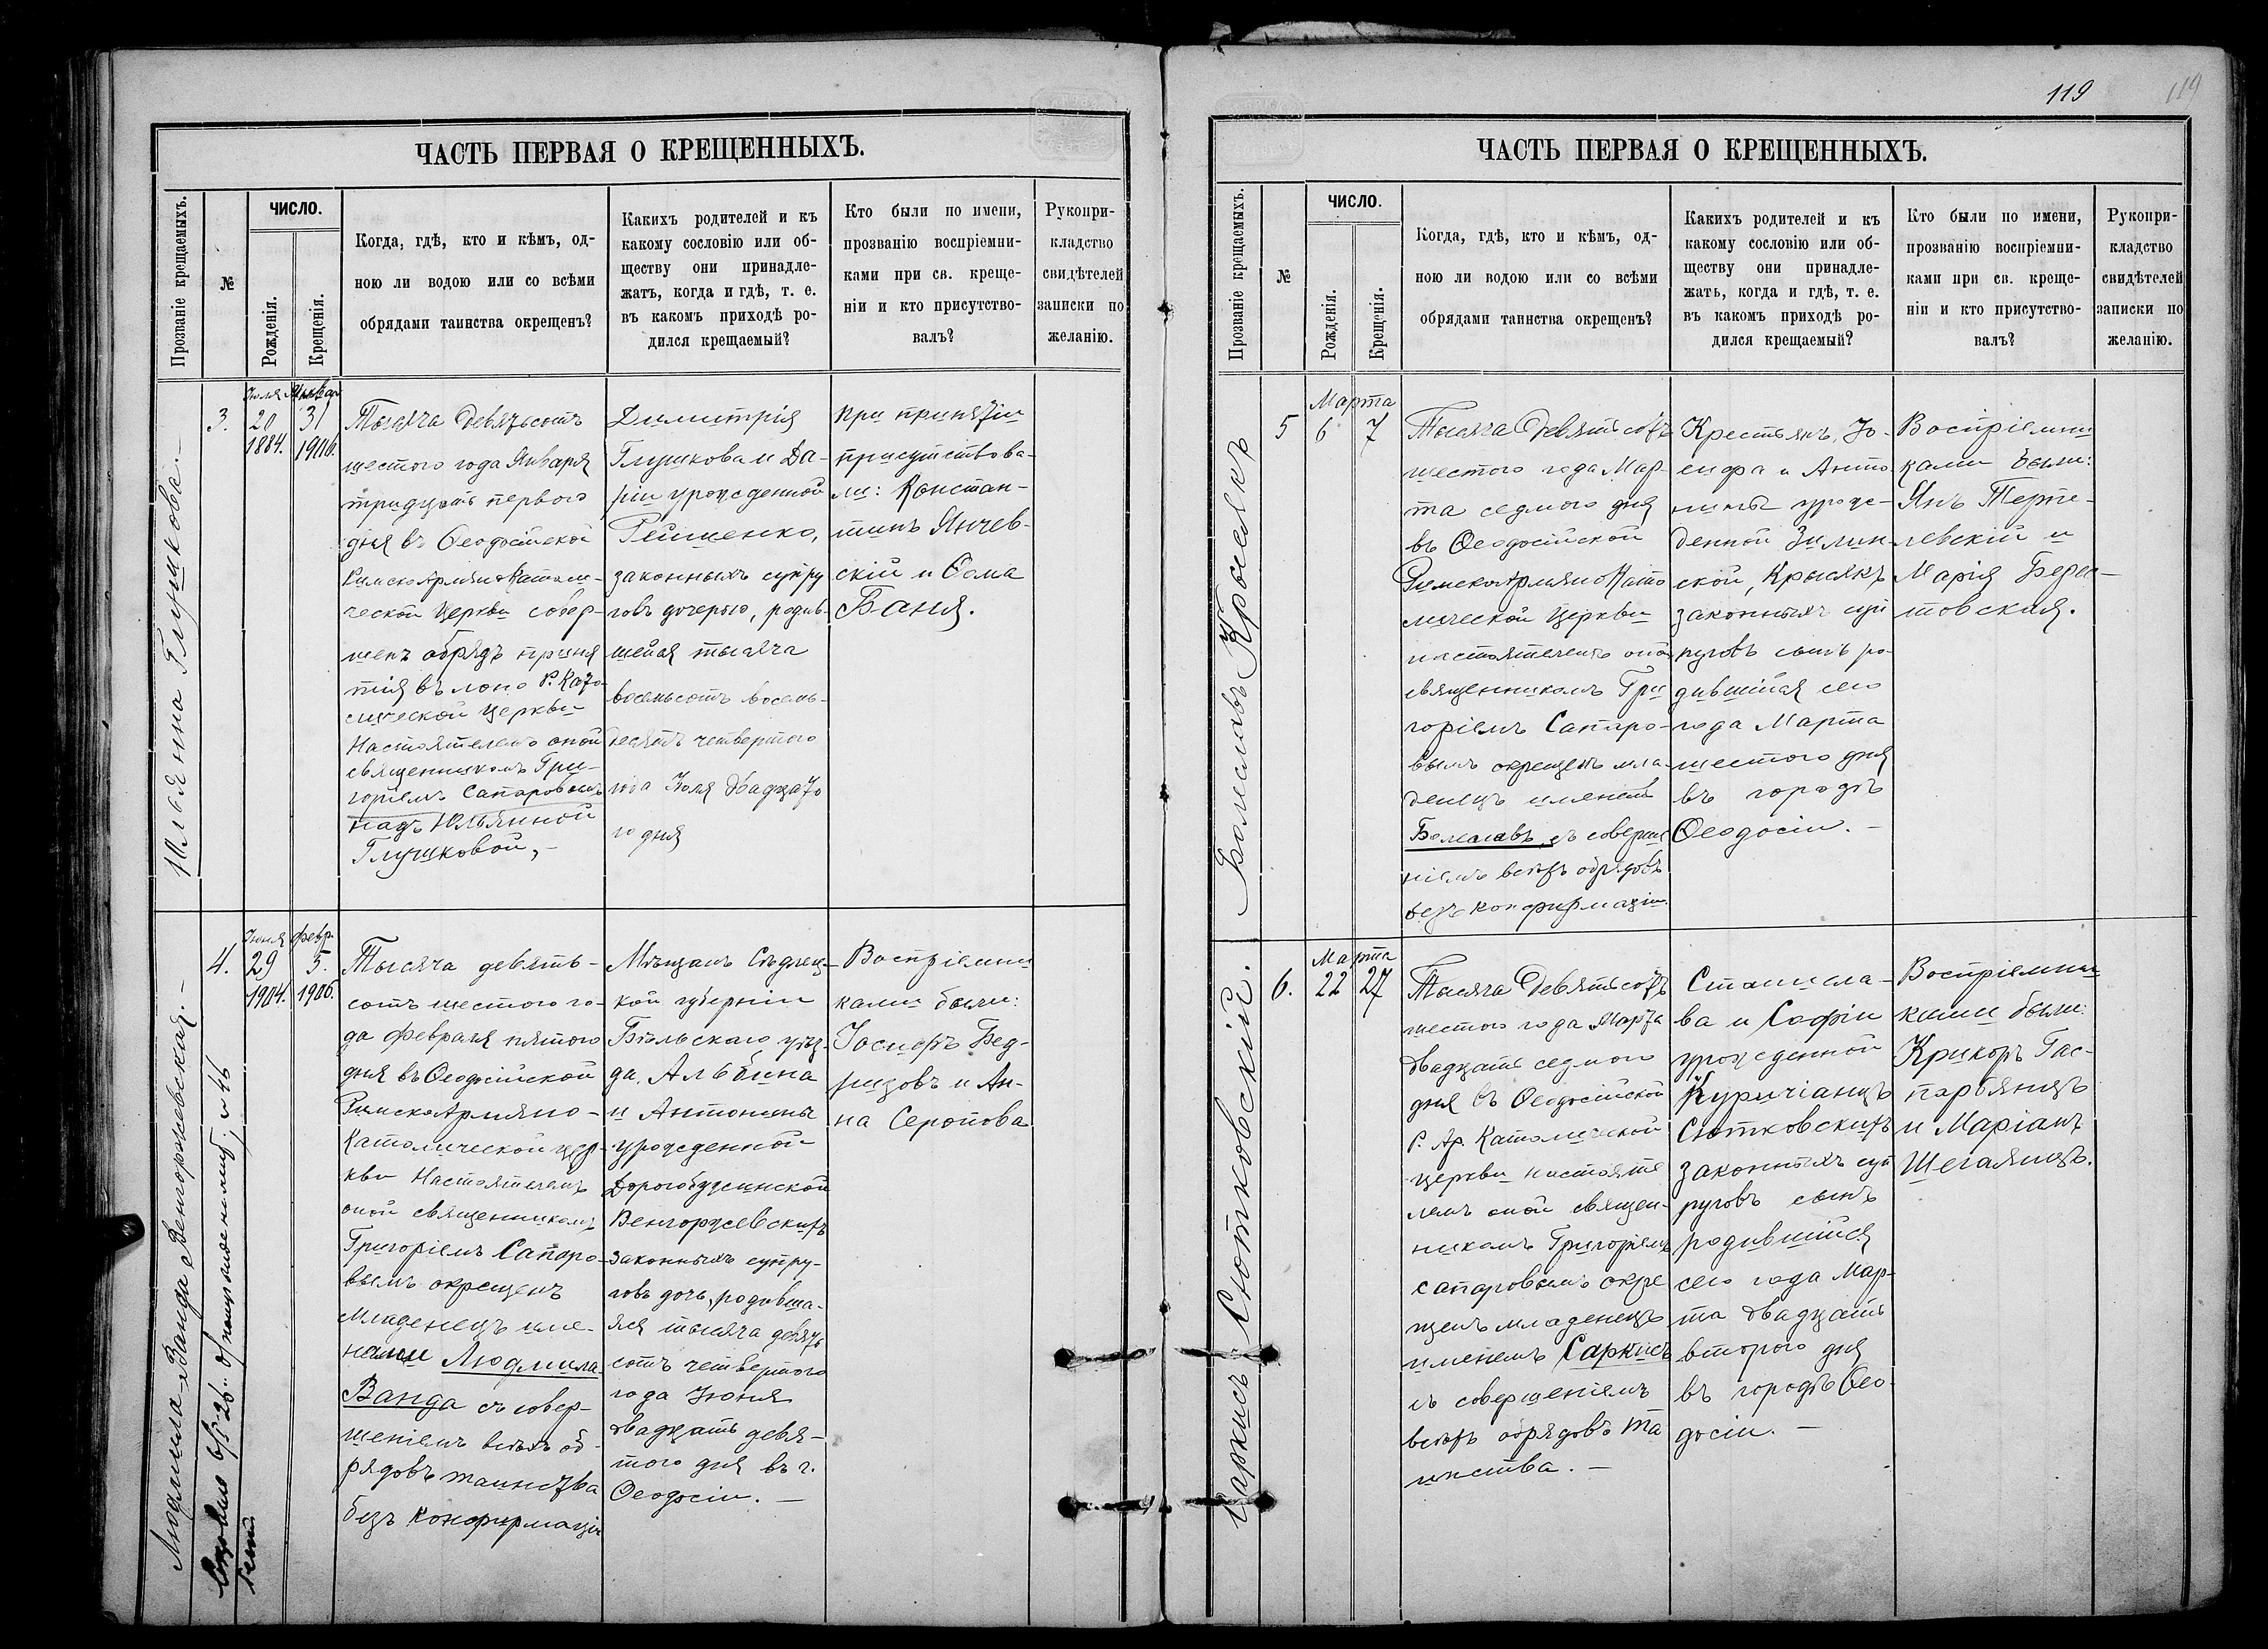 ЧАСТЬ ПЕРВАЯ О КРЕЩЕННЫХЪ.
Прозваніе крещаемыхъ.
№
ЧИСЛО.
Рожденія.
Крещенія.
Когда, гдѣ, кто и кѣмъ, од-
ною ли водою или со всѣми
обрядами таинства окрещенъ?
Какихъ родителей и къ
какому сословію или об-
ществу они принадле-
жатъ, когда и гдѣ, т. е.
въ какомъ приходѣ ро-
дился крещаемый?
Кто были по имени,
прозванію воспріемни-
ками при св. креще-
ніи и кто присутство-
валъ?
Рукопри-
кладство
свидѣтелей
записки по
желанію.
Юльянна Глушкова.—
3.
Іюля
20
1884.
Января
31
1906.
Тысяча девятьсотъ
шестого года Января
тридцать перваго
дня въ Ѳеодосійской
Римско Армяно Католи-
ческой Церкви совер-
шенъ обрядъ приня
тія въ лоно Р. Като-
лической Церкви
Настоятелемъ оной
священникомъ Гри-
горіемъ Сапаровымъ
надъ Юльянной
Глушковой,—
Димитрія
Глушкова и Да-
ріи урожденной
законныхъ супру
говъ дочерью, родив-
шейся тысяча
восемьсотъ восемь-
десятъ четвертого
года Іюля двадцато
го дня
При принятіи
присутствова-
ли: Констан-
тинъ Янчев-
скій и Ѳома
Баня.
Людмила-Ванда Венгоржевская.—
4.
Іюня
29
1904.
Февр.
5.
1906.
Тысяча девять-
сотъ шестого го-
да Февраля пятого
дня въ Ѳеодосійской
Римско Армяно-
Католической цер-
кви Настоятелемъ
оной священникомъ
Григоріемъ Сапаро-
вымъ окрещенъ
младенецъ име-
нами Людмила
Ванда съ совер-
шеніемъ всѣхъ об-
рядовъ таинства
безъ конфирмаціи
Мѣщанъ Сѣдлец-
кой губерніи
Бѣльскаго уѣз-
да, Альбина
и Антонины
урожденной
Дорогобужинской
Венгоржевскихъ
законныхъ супру-
говъ дочь, родивша-
яся тысяча девять
сотъ четвертого
года Іюня
двадцать девя-
того дня въ г.
Ѳеодосіи.—
Воспріемни
ками были:
Іосифъ Бед-
ризовъ и Ан-
на Серопова
119
119
ЧАСТЬ ПЕРВАЯ О КРЕЩЕННЫХЪ.
Прозваніе крещаемыхъ.
№
ЧИСЛО.
Рожденія.
Крещенія.
Когда, гдѣ, кто и кѣмъ, од-
ною ли водою или со всѣми
обрядами таинства окрещенъ?
Какихъ родителей и къ
какому сословію или об-
ществу они принадле-
жатъ, когда и гдѣ, т. е.
въ какомъ приходѣ ро-
дился крещаемый?
Кто были по имени,
прозванію воспріемни-
ками при св. креще-
ніи и кто присутство-
валъ?
Рукопри-
кладство
свидѣтелей
записки по
желанію.
Болеславъ Крысякъ
5
Марта
6
7
Тысяча Девятьсотъ
шестого года Мар-
та седмого дня
въ Ѳеодосійской
Римско Армяно Като
лической Церкви
настоятелемъ оной
священникомъ Гри
горіемъ Сапаро-
вымъ окрещенъ мла-
денецъ именемъ
Болеславъ, съ соверше
ніемъ всѣхъ обрядовъ
безъ конфирмаціи.
Крестьянъ, Іо-
сифа и Анто-
нины урож-
денной Зилин-
ской, Крысякъ
законныхъ суп
руговъ сынъ ро-
дившійся сего
года Марта
шестого дня
въ городѣ
Ѳеодосіи.—
Воспріемни
ками были:
Янъ Терпе-
левскій и
Марія Берес-
товская.
Саркисъ Сютковскій.
6.
Марта
22
27
Тысяча Девятьсотъ
шестого года Марта
двадцать седмого
дня въ Ѳеодосійской
Р. Ар. Католической
церкви настояте
лемъ оной священ-
никомъ Григоріемъ
Сапаровымъ окре
щенъ младенецъ
именемъ Саркисъ
съ совершеніемъ
всѣхъ обрядовъ та
инства.—
Станисла-
ва и Софіи
урожденной
Куричіанцъ
Сютковскихъ
законныхъ суп
руговъ сынъ
родившійся
сего года Мар-
та двадцать
второго дня
въ городѣ Ѳео-
досіи.—
Воспріемни
ками были:
Крикоръ Гас-
парьянцъ
и Маріамъ
Шегаянцъ.